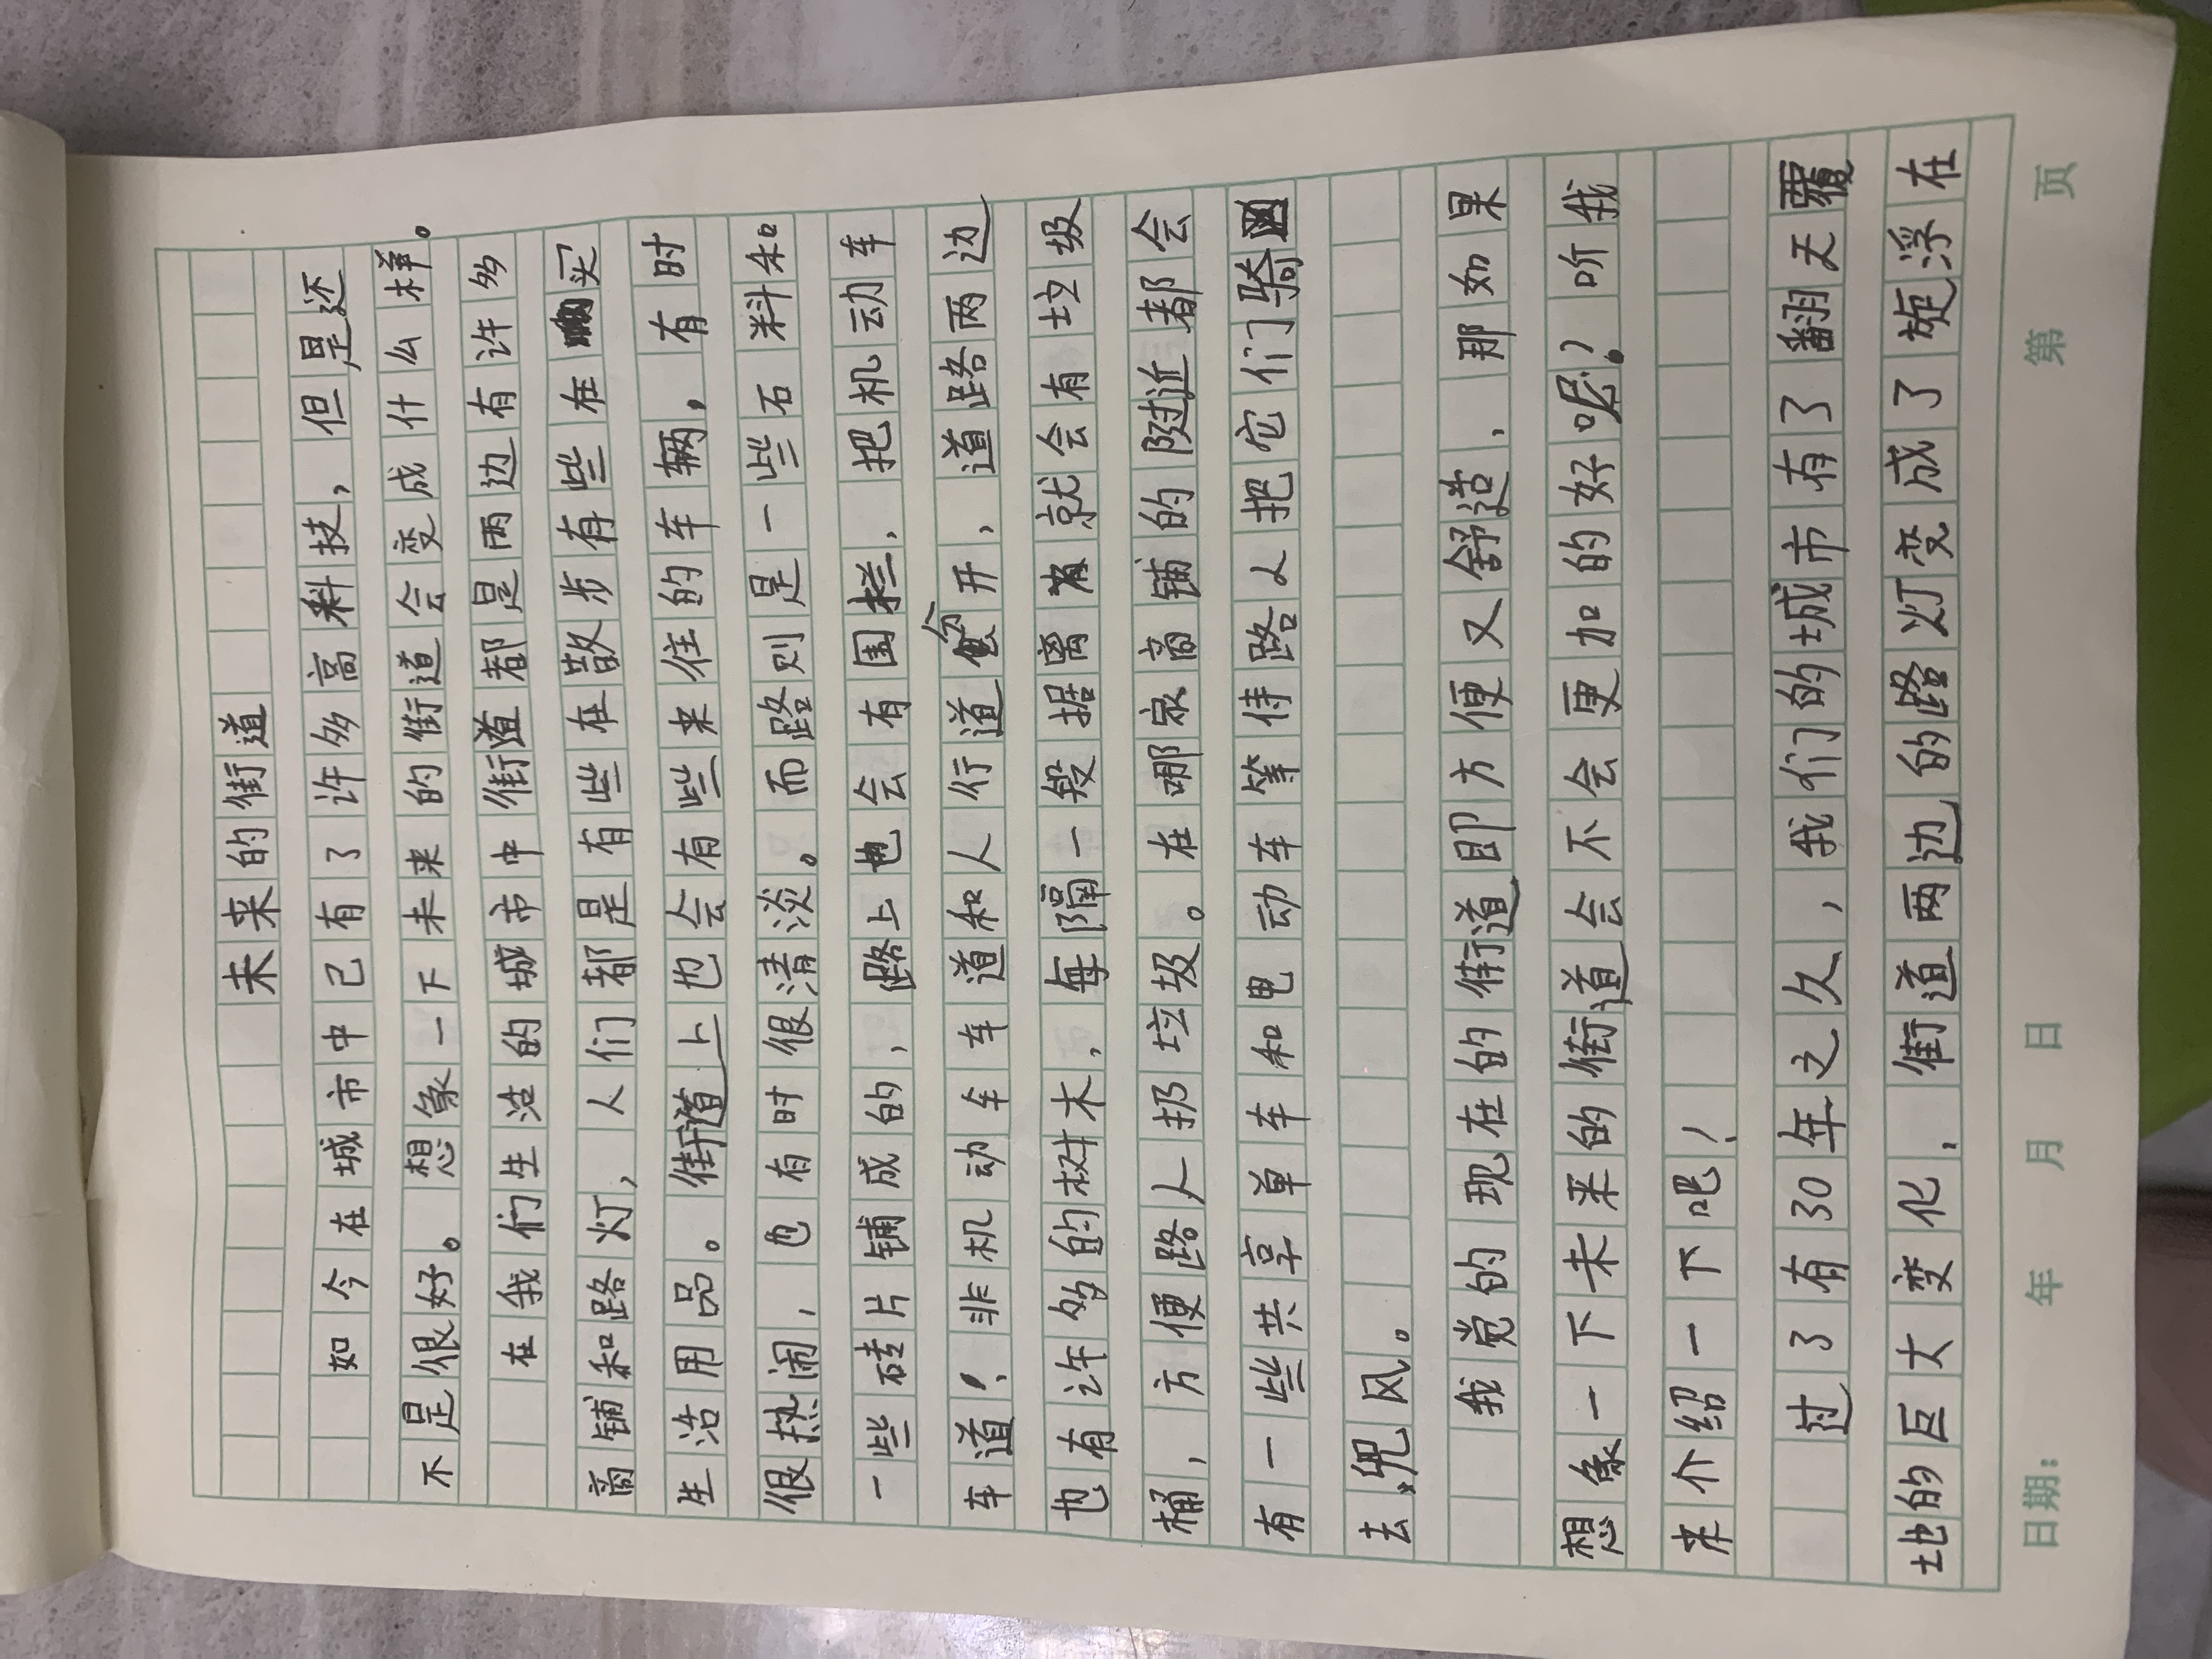 未来的街道
如今在城市中已有了许多高科技，但是还
不是很好。想象一下未来的街道会变成什么样。
在我们生活的城市中街道都是两边有许多
商铺和路灯，人们都是有些在散步有些在买
生活用品。街道上也会有些来往的车辆，有时
很热闹，也有时很清淡。而路则是一些石料和
一些砖片铺成的，路上也会有围栏，把机动车
车道、非机动车车道和人行道分开，道路两边
也有许多的树木，每隔一段据离就会有垃圾
桶，方便路人扔垃圾。在哪家商铺的附近都会
有一些共享单车和电动车等待路人把它们骑
去兜风。
我觉的现在的街道即方便又舒适，那如果
想象一下未来的街道会不会更加的好呢？听我
来介绍一下吧！
过了有30年之久，我们的城市有了翻天覆
地的巨大变化，街道两边的路灯变成了旋浮在
日期： 年 月 日 第 页